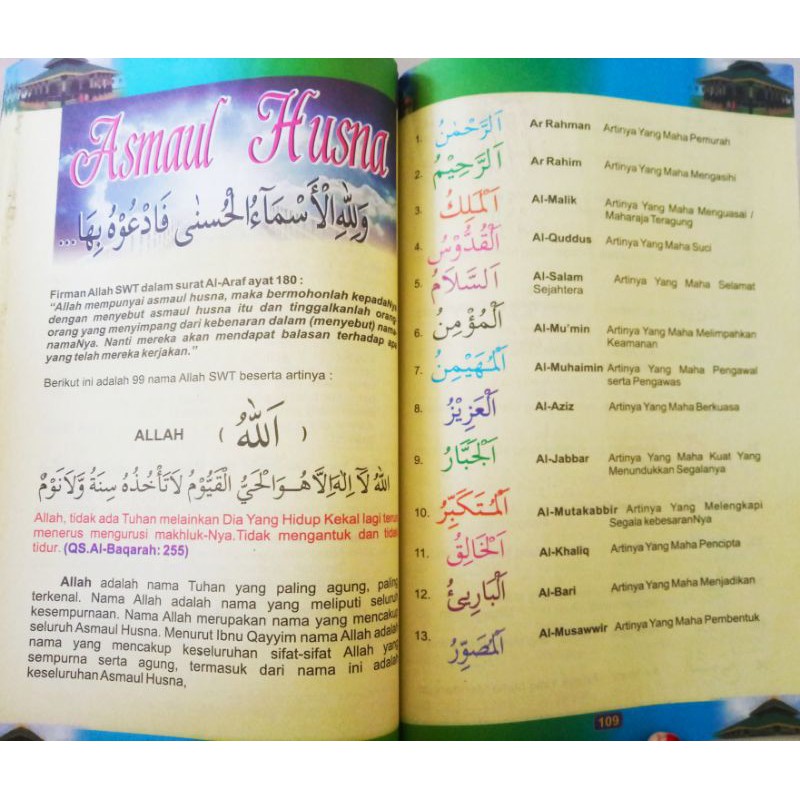 Asmaul Husna
وَلِلّٰهِ الْأَسْمَآءُ الْحُسْنٰى فَادْعُوْهُ بِهَا...
Firman Allah SWT dalam surat Al-Araf ayat 180 :
“Allah mempunyai asmaul husna, maka bermohonlah kepadaNya
dengan menyebut asmaul husna itu dan tinggalkanlah orang-
orang yang menyimpang dari kebenaran dalam (menyebut) nama-
namaNya. Nanti mereka akan mendapat balasan terhadap apa
yang telah mereka kerjakan.”
Berikut ini adalah 99 nama Allah SWT beserta artinya :
ALLAH ( اَللّٰهُ )
اَللّٰهُ لَآ اِلٰهَ اِلَّا هُوَ الْحَيُّ الْقَيُّوْمُ لَا تَأْخُذُهُ سِنَةٌ وَّلَا نَوْمٌ
Allah, tidak ada Tuhan melainkan Dia Yang Hidup Kekal lagi terus
menerus mengurusi makhluk-Nya.Tidak mengantuk dan tidak
tidur. (QS.Al-Baqarah: 255)
Allah adalah nama Tuhan yang paling agung, paling
terkenal. Nama Allah adalah nama yang meliputi seluruh
kesempurnaan. Nama Allah merupakan nama yang mencakup
seluruh Asmaul Husna. Menurut Ibnu Qayyim nama Allah adalah
nama yang mencakup keseluruhan sifat-sifat Allah yang
sempurna serta agung, termasuk dari nama ini adalah
keseluruhan Asmaul Husna,
1. اَلرَّحْمٰنُ Ar Rahman Artinya Yang Maha Pemurah
2. اَلرَّحِيْمُ Ar Rahim Artinya Yang Maha Mengasihi
3. اَلْمَلِكُ Al-Malik Artinya Yang Maha Menguasai /
Maharaja Teragung
4. اَلْقُدُّوْسُ Al-Quddus Artinya Yang Maha Suci
5. اَلسَّلَامُ Al-Salam Artinya Yang Maha Selamat
Sejahtera
6. اَلْمُؤْمِنُ Al-Mu’min Artinya Yang Maha Melimpahkan
Keamanan
7. اَلْمُهَيْمِنُ Al-Muhaimin Artinya Yang Maha Pengawal
serta Pengawas
8. اَلْعَزِيْزُ Al-Aziz Artinya Yang Maha Berkuasa
9. اَلْجَبَّارُ Al-Jabbar Artinya Yang Maha Kuat Yang
Menundukkan Segalanya
10. اَلْمُتَكَبِّرُ Al-Mutakabbir Artinya Yang Melengkapi
Segala kebesaranNya
11. اَلْخَالِقُ Al-Khaliq Artinya Yang Maha Pencipta
12. اَلْبَارِئُ Al-Bari Artinya Yang Maha Menjadikan
13. اَلْمُصَوِّرُ Al-Musawwir Artinya Yang Maha Pembentuk
109